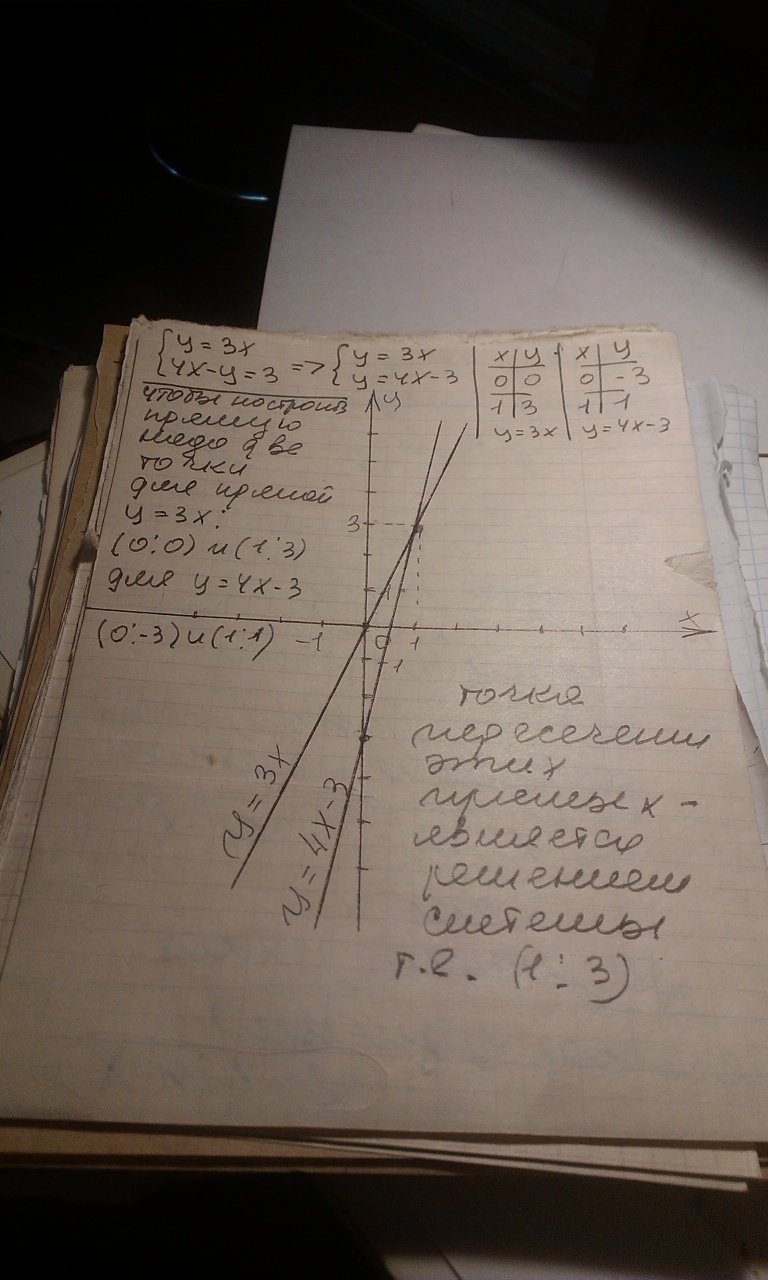 {y = 3x => {y = 3x
4x-y = 3 y = 4x-3
x y x y
0 0 0 -3
1 3 1 1
y = 3x y = 4x-3
чтобы построить
прямую
надо две
точки
для прямой
y = 3x:
(0;0) и (1;3)
для y = 4x-3
(0;-3) и (1;1)
y
3
1
x
-1 0 1
-1
y = 3x
y = 4x-3
точка
пересечения
этих
прямых -
является
решением
системы
т.е. (1;3)